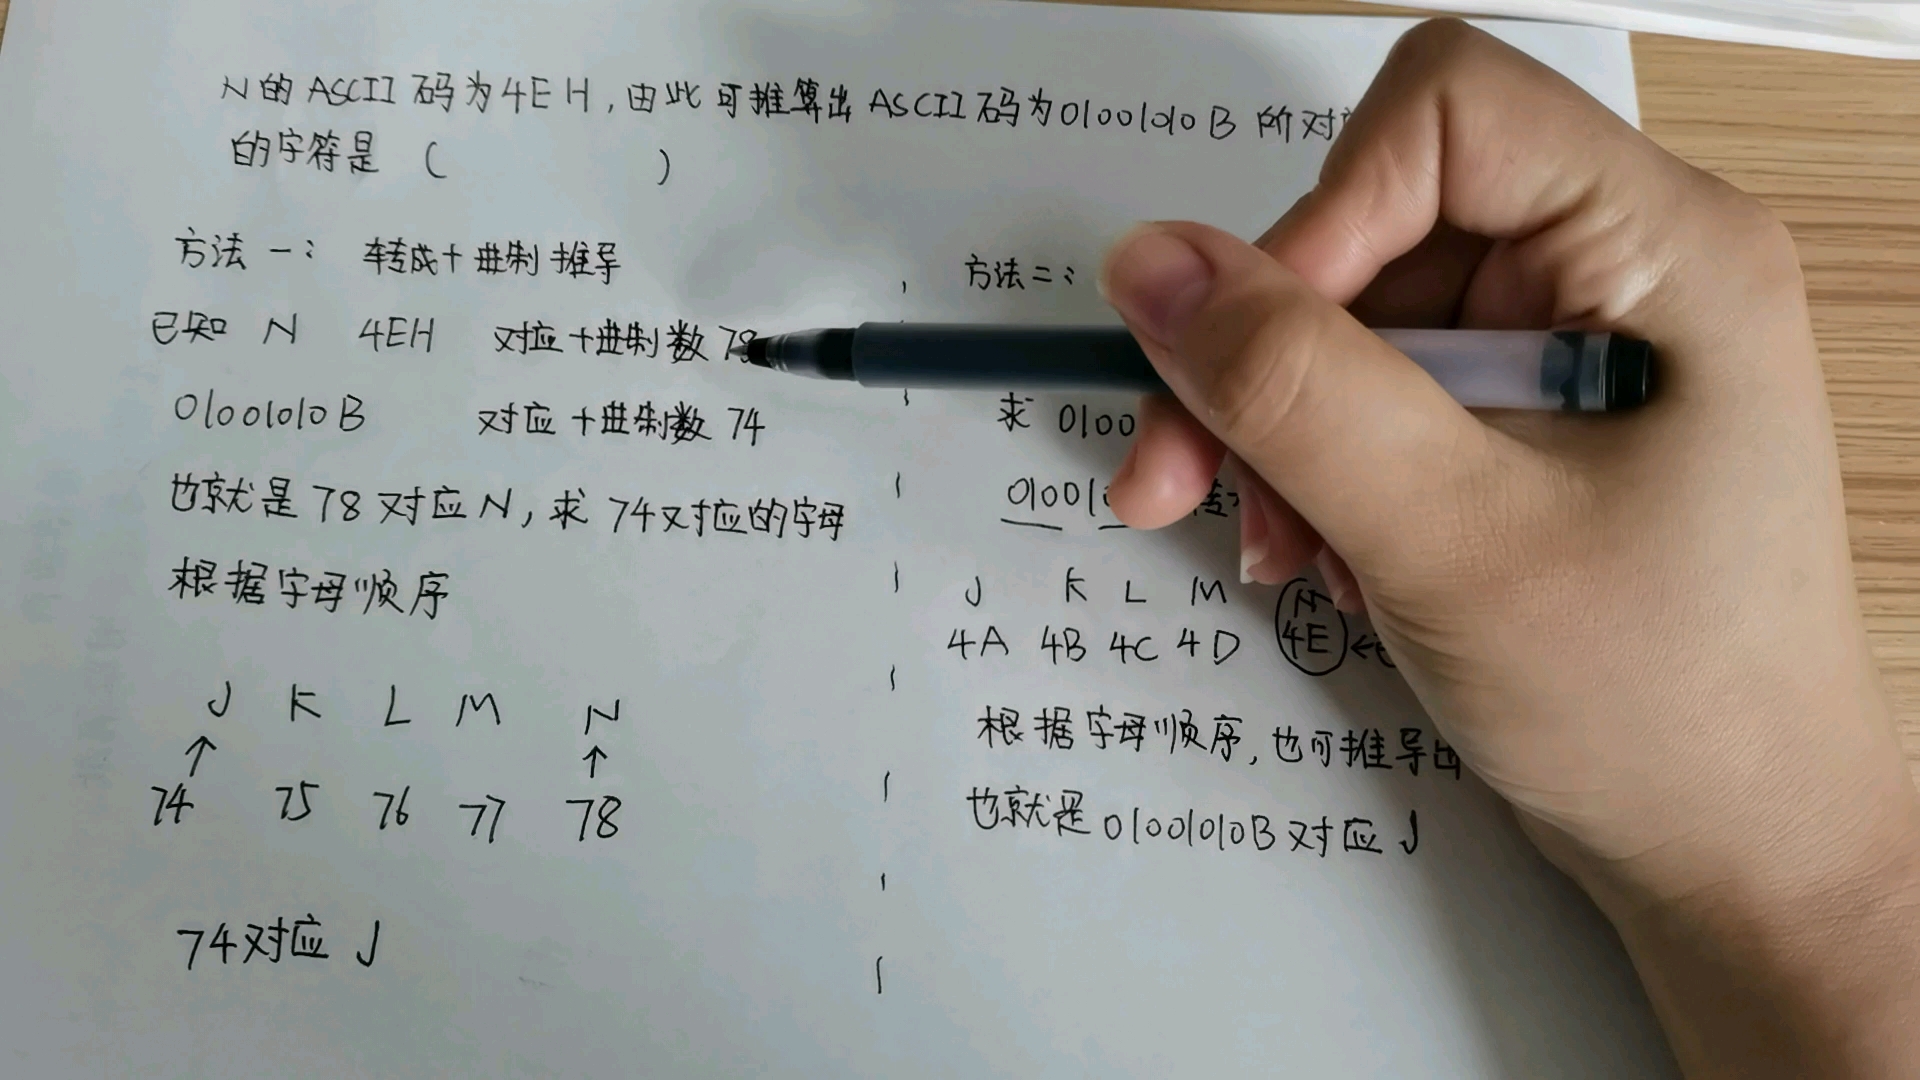 N的ASCII码为4EH,由此可推算出ASCII码为01001010B所对
的字符是 ( )
方法一: 转成十进制推导
已知 N 4EH 对应十进制数 78
01001010B 对应十进制数 74
也就是78对应N,求74对应的字母
根据字母顺序
J K L M N
↑ ↑
74 75 76 77 78
74对应 J
方法二:
求 0100
01001
J K L M N
4A 4B 4C 4D 4E ←
根据字母顺序,也可推导出
也就是01001010B对应 J